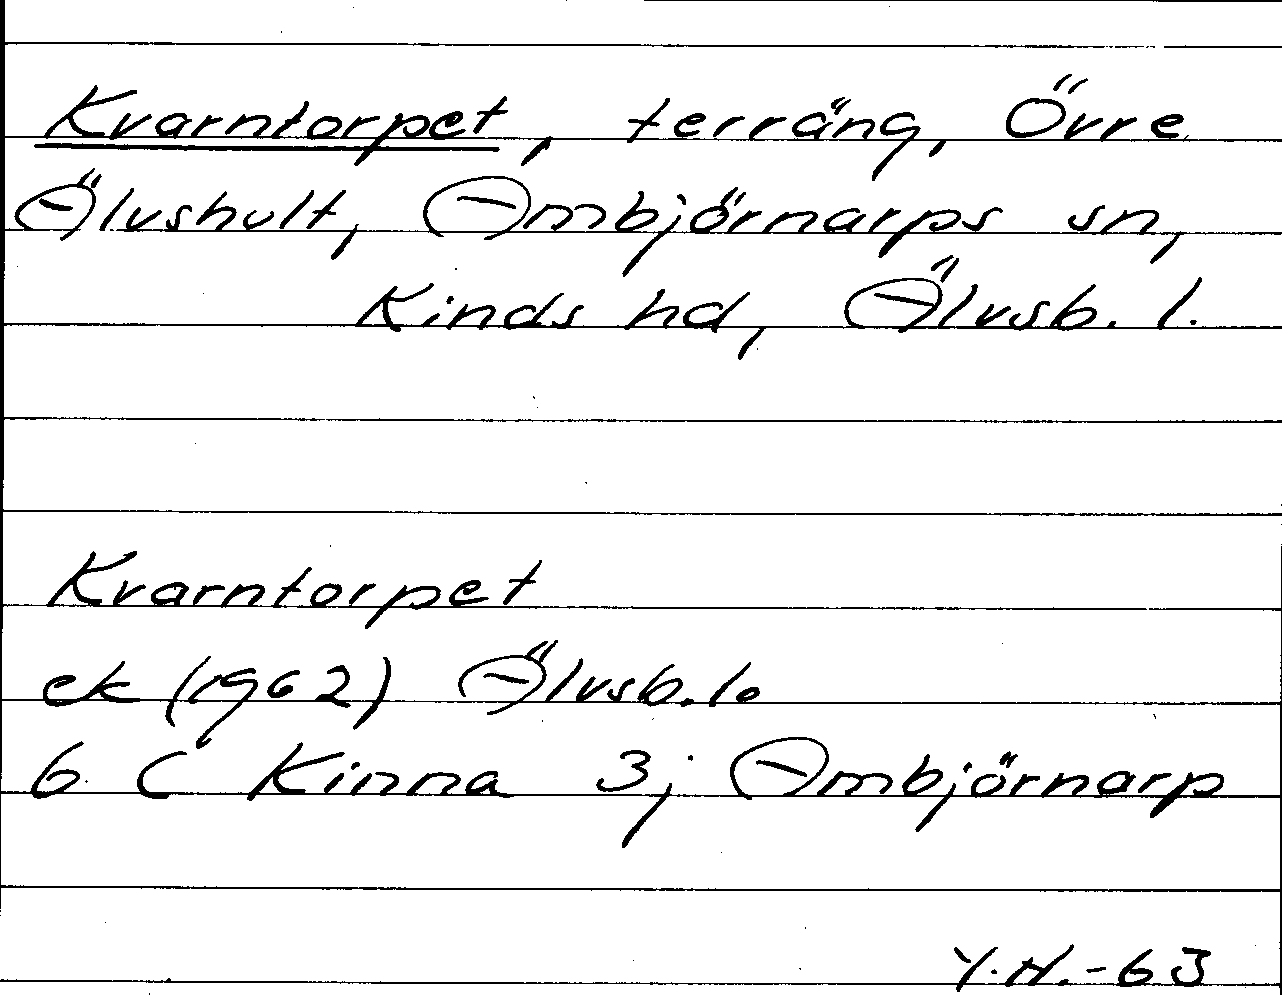 Kvarntorpet, terräng, Övre
Älvshult, Ambjörnarps sn,
Kinds hd, Älvsb. l.
Kvarntorpet
ek (1962) Älvsb. l.
6 C Kinna 3j Ambjörnarp
Y.H.-63